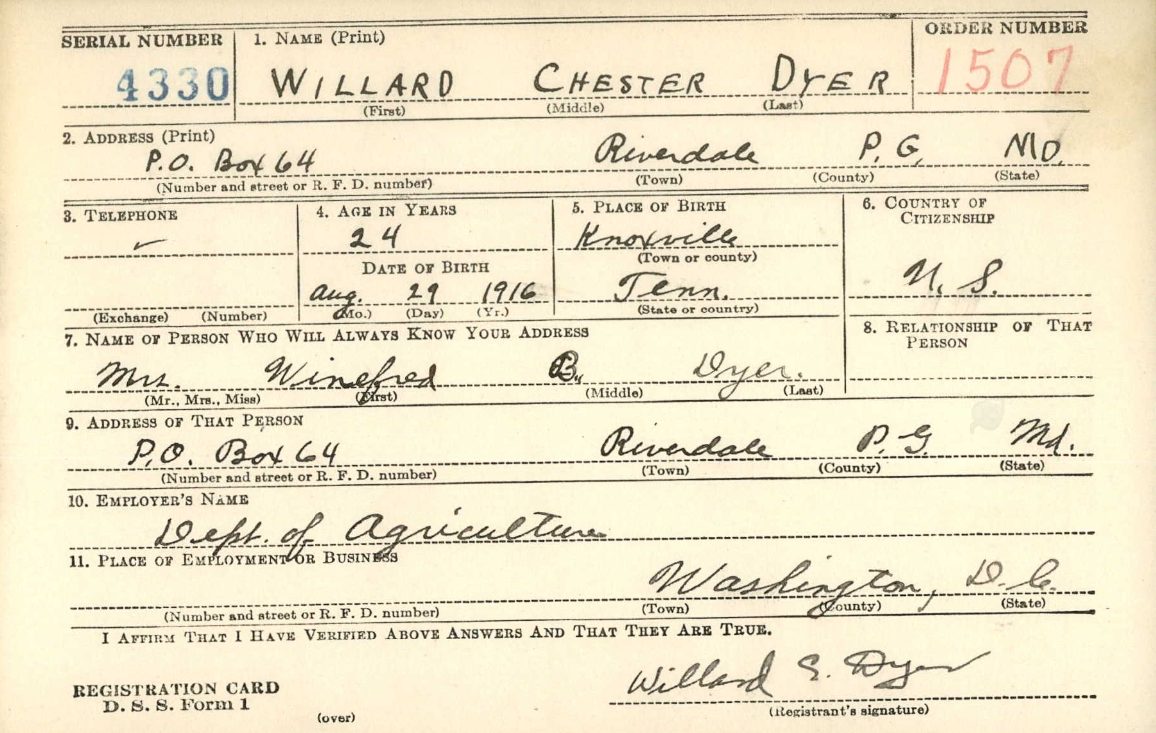 SERIAL NUMBER 1. NAME (Print) ORDER NUMBER
4330 WILLARD CHESTER DYER 1507
(First) (Middle) (Last)
2. ADDRESS (Print)
P.O. Box 64 Riverdale P. G. MD.
(Number and street or R. F. D. number) (Town) (County) (State)
3. TELEPHONE 4. AGE IN YEARS 5. PLACE OF BIRTH 6. COUNTRY OF CITIZENSHIP
24 Knoxville
(Town or county)
DATE OF BIRTH U. S.
Aug. 29 1916 Tenn.
(Exchange) (Number) (Mo.) (Day) (Yr.) (State or country)
7. NAME OF PERSON WHO WILL ALWAYS KNOW YOUR ADDRESS 8. RELATIONSHIP OF THAT PERSON
Mrs. Winefred B. Dyer.
(Mr., Mrs., Miss) (First) (Middle) (Last)
9. ADDRESS OF THAT PERSON
P.O. Box 64 Riverdale P. G. Md.
(Number and street or R. F. D. number) (Town) (County) (State)
10. EMPLOYER'S NAME
Dept. of Agriculture
11. PLACE OF EMPLOYMENT OR BUSINESS
Washington, D. C.
(Number and street or R. F. D. number) (Town) (County) (State)
I AFFIRM THAT I HAVE VERIFIED ABOVE ANSWERS AND THAT THEY ARE TRUE.
Willard C. Dyer
REGISTRATION CARD
D. S. S. Form 1
(over) (Registrant's signature)